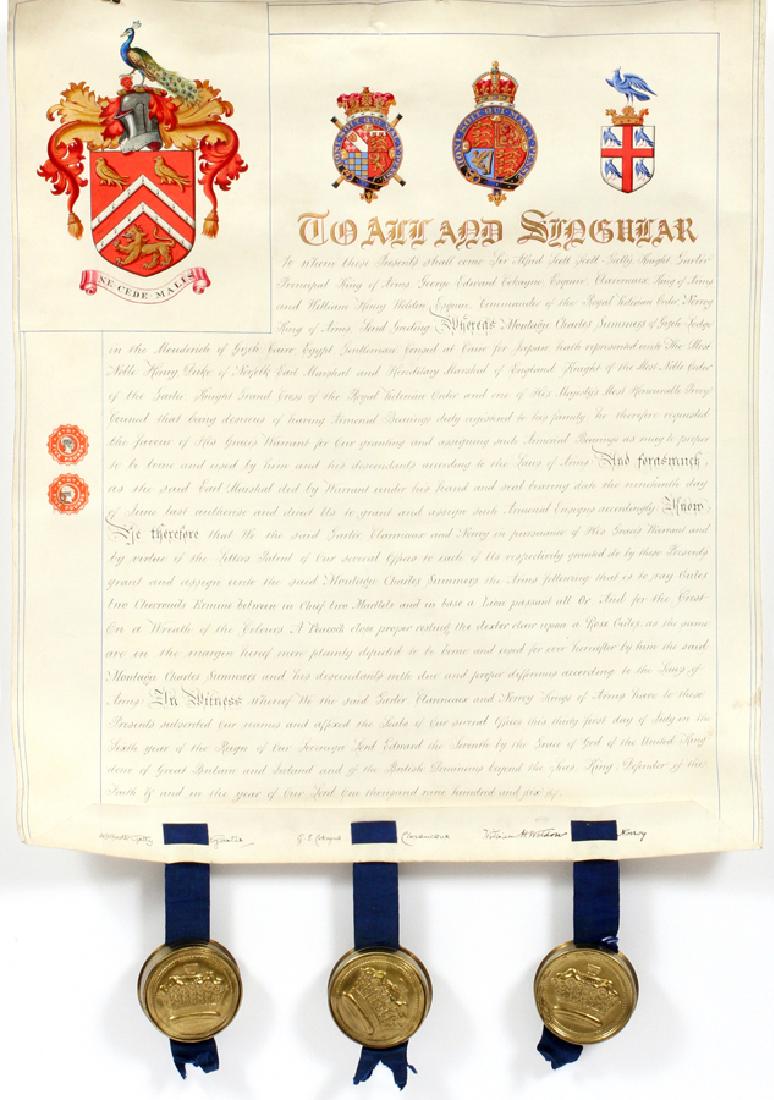 NE CEDE MALIS
HONI SOIT QUI MAL Y PENSE
TO ALL AND SINGULAR
to whom these Presents shall come Sir Alfred Scott Scott-Gatty Knight Garter
Principal King of Arms George Edward Cokayne Esquire Clarenceux King of Arms
and William Henry Weldon Esquire Commander of the Royal Victorian Order, Norroy
King of Arms, Send Greeting Whereas Montagu Charles Summers of Gezireh Lodge
in the of Cairo Egypt Gentleman at Cairo hath represented unto The Most
Noble Henry Duke of Norfolk Earl Marshal and Hereditary Marshal of England Knight of the Most Noble Order
of the Garter, Knight Grand Cross of the Royal Victorian Order and one of His Majesty's Most Honourable Privy
Council that being desirous of having Armorial Bearings duly registered to his family He therefore requested
the favour of His Grace's Warrant for Our granting and assigning such Armorial Bearings as may be proper
to be borne and used by him and his descendants according to the Laws of Arms And forasmuch
as the said Earl Marshal did by Warrant under his hand and seal bearing date the nineteenth day
of June last authorise and direct Us to grant and assign such Armorial Ensigns accordingly Know
Ye therefore that We the said Garter Clarenceux and Norroy in pursuance of His Grace's Warrant and
by virtue of the Letters Patent of Our several Offices to each of Us respectively granted do by these Presents
grant and assign unto the said Montagu Charles Summers the Arms following that is to say Gules
two Chevronels Ermine between in chief two Martlets and in base a Lion passant all Or And for the Crest
On a Wreath of the Colours A Peacock close proper resting the dexter claw upon a Rose Gules, as the same
are in the margin hereof more plainly depicted to be borne and used for ever hereafter by him the said
Montagu Charles Summers and his descendants with due and proper differences according to the Laws of
Arms In Witness whereof We the said Garter Clarenceux and Norroy Kings of Arms have to these
Presents subscribed Our names and affixed the Seals of Our several Offices this thirty first day of July in the
Sixth year of the Reign of Our Sovereign Lord Edward the Seventh by the Grace of God of the United King
dom of Great Britain and Ireland and of the British Dominions beyond the Seas, King, Defender of the
Faith &c and in the year of Our Lord One thousand nine hundred and six
G. E. Cokayne Clarenceux William H Weldon Norroy